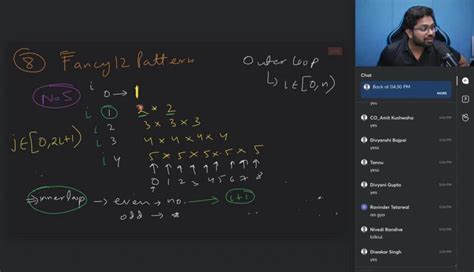 8 Fancy12 Pattern
Outer loop
↳ i∈[0,n)
N=5
i
0 → 1
i 1 2 * 2
i 2 3 * 3 * 3
i 3 4 * 4 * 4 * 4
i 4 5 * 5 * 5 * 5 * 5
j∈[0,2i+1)
0 1 2 3 4 5 6 7 8
innerloop → even → no. → i+1
odd → *
Chat
Back at 04:30 PM
MORE
yes
CO_Amit Kushwaha
yes
Divyanshi Bajpai
yes
Tannu
yes
Divyani Gupta
yes
Ravinder Tetarwal
aa gyo
Nivedi Randive
bilkul
Diwakar Singh
yes